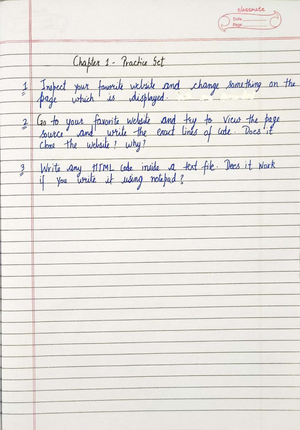 classmate
Date
Page
Chapter 1 - Practice Set
1 Inspect your favorite website and change something on the
page which is displayed.
2 Go to your favorite website and try to view the page
source and write the exact lines of code. Does it
clone the website? why?
3 Write any HTML code inside a text file. Does it work
if you write it using notepad?